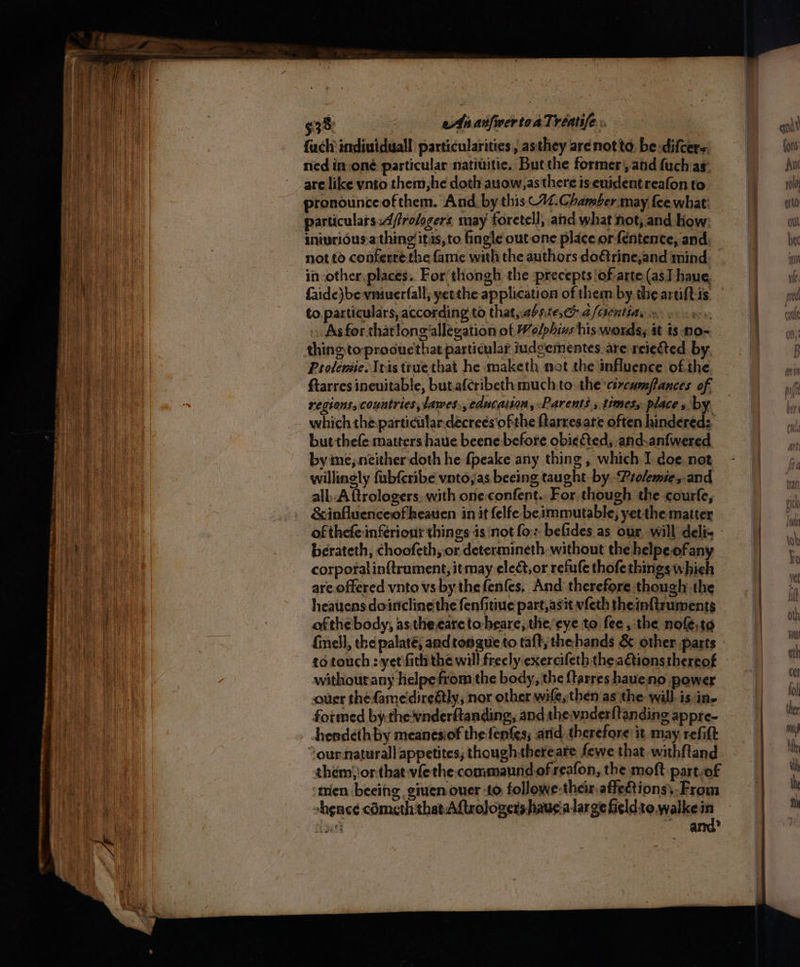 538 An answer to a Treatise
ſuch indiuiduall particularities, as they are not to be diſcer-
ned in one particular natiuitie. But the former, and ſuch as
are like vnto them, he doth auow, as there is euident reaſon to
pronounce of them. And by this M. Chamber may ſee what
particulars Aſtrologers may foretell, and what not, and how
iniurious a thing it is, to ſingle out one place or ſentence, and
not to conferre the ſame with the authors doctrine, and mind
in other places. For though the precepts of arte (as I haue
ſaide) be vniuerſall, yet the application of them by the artiſt is
to particulars, according to that, abs te, & a ſcientia.
As for that long allegation of Wolphius his words, it is no-
thing to prooue that particular iudgementes are reiected by
Ptolemie. It is true that he maketh not the influence of the
ſtarres ineuitable, but aſcribeth much to the circumſtances of
regions, countries, lawes, education, Parents, times, place, by
which the particular decrees of the ſtarres are often hindered:
but theſe matters haue beene before obiected, and anſwered
by me, neither doth he ſpeake any thing, which I doe not
willingly ſubſcribe vnto, as beeing taught by Ptolemie, and
all Aſtrologers with one conſent. For though the courſe,
& influence of heauen in it ſelfe be immutable, yet the matter
of theſe inferiour things is not ſo: beſides as our will deli-
berateth, chooſeth, or determineth without the helpe of any
corporal inſtrument, it may elect, or refuſe thoſe things which
are offered vnto vs by the ſenſes. And therefore though the
heauens do incline the ſenſitiue part, as it vſeth the inſtruments
of the body, as the eare to heare, the eye to ſee, the noſe, to
ſmell, the palate, and tongue to taſt, the hands & other parts
to touch: yet ſith the will freely exerciſeth the actions thereof
without any helpe from the body, the ſtarres haue no power
ouer the ſame directly, nor other wiſe, then as the will is in-
formed by the vnderſtanding, and the vnderſtanding appre-
hendeth by meanes of the ſenſes, and therefore it may reſiſt
our naturall appetites, though there are fewe that withſtand
them, or that vſe the commaund of reaſon, the moſt part of
men beeing giuen ouer to followe their affections. From
hence cometh that Aſtrologers haue a large field to walke in
and